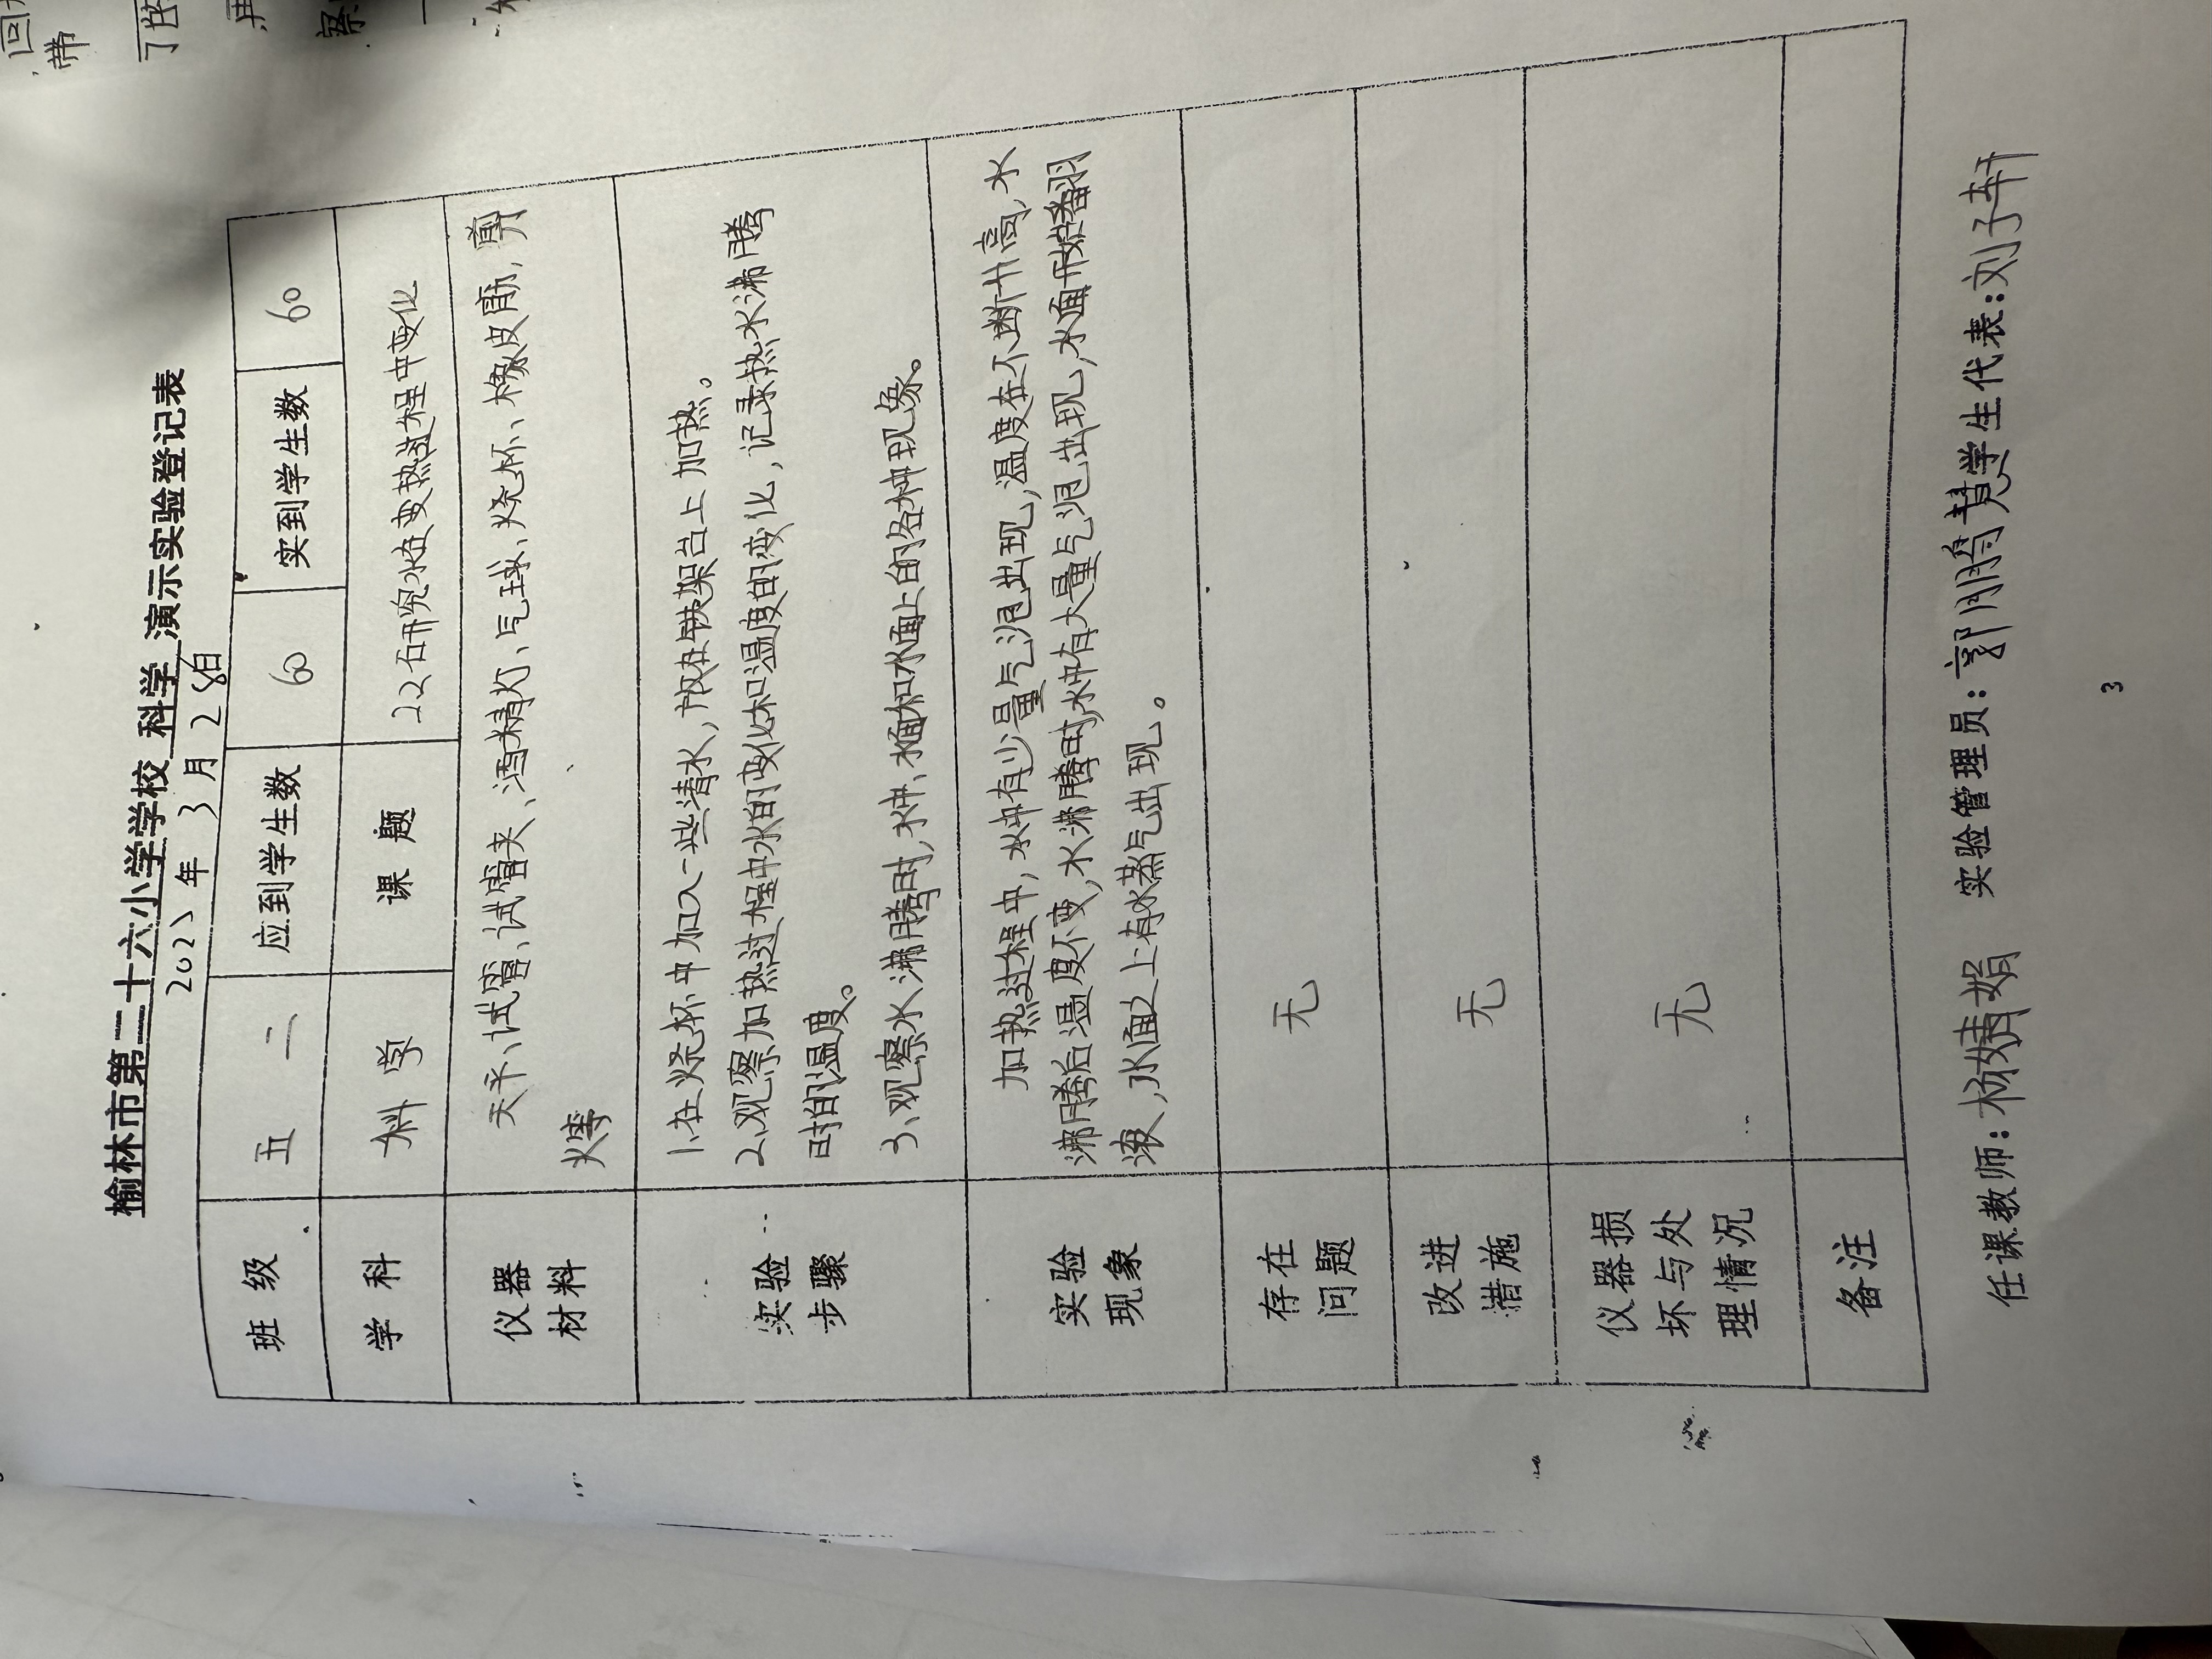 榆林市第二十六小学学校 科学 演示实验登记表
年 3月28日
班级 五 二 应到学生数 60 实到学生数 60
学科 科学 课题 22研究水变热过程中变化
仪器材料
天平、试管、试管夹、酒精灯、气球、烧杯、橡皮筋,
火等
实验步骤
1、在烧杯中加入一些清水,放在铁架台上加热。
2、观察加热过程中水的变化和温度的变化,记录热水沸腾
时的温度。
3、观察水沸腾时,水中、水面和水面上的各种现象。
实验现象
加热过程中,水中有少量气泡出现,温度在不断升高,水
沸腾后温度不变,水沸腾时,水中有大量气泡出现,水面开始翻
滚,水面之上有水蒸气出现。
存在问题 无
改进措施 无
仪器损坏与处理情况 无
备注
任课教师:杨婧娟 实验管理员:郭 慧 学生代表:刘子轩
3